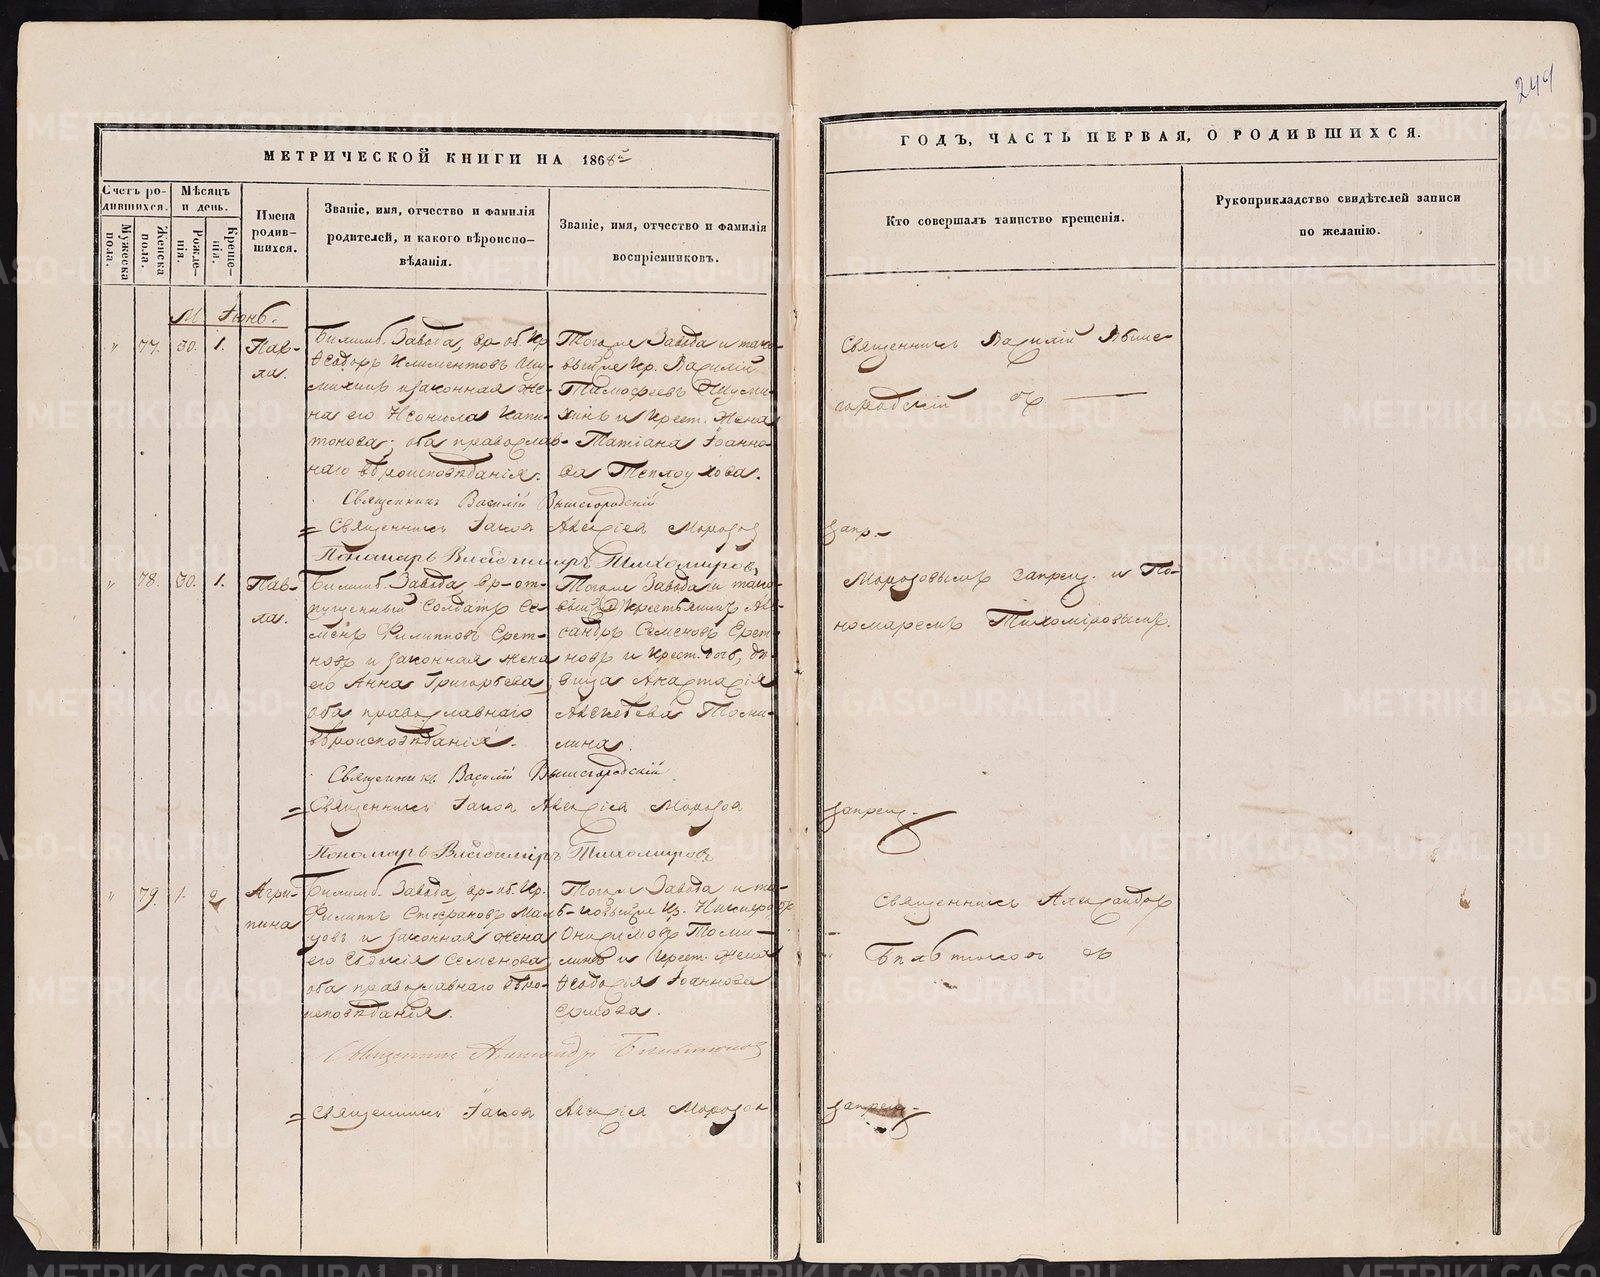 249
МЕТРИЧЕСКОЙ КНИГИ НА 1868й
ГОДЪ, ЧАСТЬ ПЕРВАЯ, О РОДИВШИХСЯ.
Счетъ ро-
дившихся.
Мужеска
пола.
Женска
пола.
Мѣсяцъ
и день.
Рожде-
нія.
Креще-
нія.
Имена
родив-
шихся.
Званіе, имя, отчество и фамилія
родителей, и какого вѣроиспо-
вѣданія.
Званіе, имя, отчество и фамилія
воспріемниковъ.
Кто совершалъ таинство крещенія.
Рукоприкладство свидѣтелей записи
по желанію.
М Іюнь.
77. 30. 1. Пав-
ла.
Билимб. Завода, вр-об. Кр.
Ѳеодоръ Климентовъ
и законная же-
на его Капи-
тонова; оба православ-
наго вѣроисповѣданія.
Тогоже Завода и тако-
выйже Кр. Василій
Тимофеевъ
и Крест. Жена
Татіана Іоанно-
ва Теплоухова.
Священникъ Василій Выше
городскій
Священникъ Василій Вышегородскій
= Священникъ Іаковъ Алексіевъ Морозов
запр.-
Пономарь Владиміръ Тихомировъ
78. 30. 1. Пав-
ла.
Билимб. Завода вр-от-
пущенный Солдатъ Се-
менъ Филипповъ Ерет-
новъ и законная жена
его Анна Григорьева,
оба православнаго
вѣроисповѣданія.
Тогоже Завода и тако-
выйже Крестьянинъ Алек-
сандръ Семеновъ Ерет-
новъ и Крест. дочь, дѣ-
вица Анастасія
Томи-
лина.
Морозовымъ запрещ. и По-
номаремъ Тихоміровымъ.
Священникъ Василій Вышегородскій
= Священникъ Іаковъ Алексіевъ Морозов
запрещ.
Пономарь Владиміръ Тихомировъ
79. 1. 2. Агри-
пина
Билимб. Завода, вр-об. Кр.
Филиппъ Стефановъ Маль-
цовъ и законная жена
его Евдокія Семенова,
оба православнаго вѣро-
исповѣданія.
Тогоже Завода и та-
ковыйже Кр. Никифоръ
Онисимовъ Томи-
линъ и Крест. Жена
Ѳеодосія Іоаннова
Ершова.
Священникъ Александръ
Бѣльтюковъ
Священникъ Александръ Бѣльтюковъ
= Священникъ Іаковъ Алексіевъ Морозов
запрещ.
METRIKI.GASO-URAL.RU